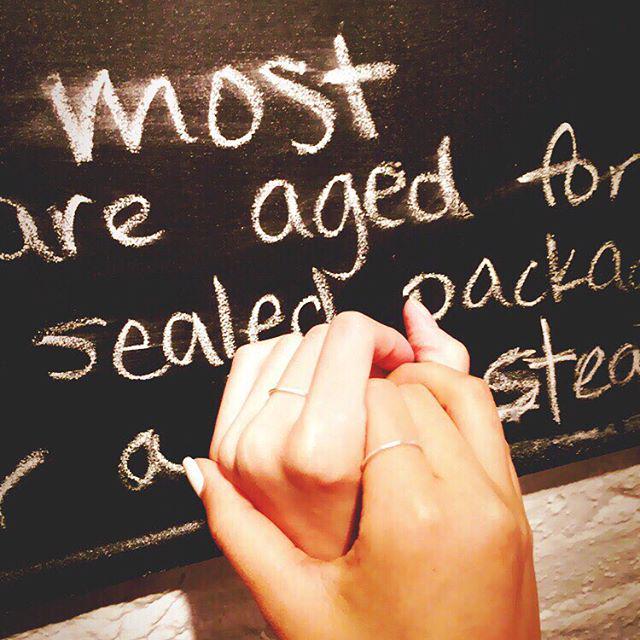 most
are aged for
sealed packa
a stea